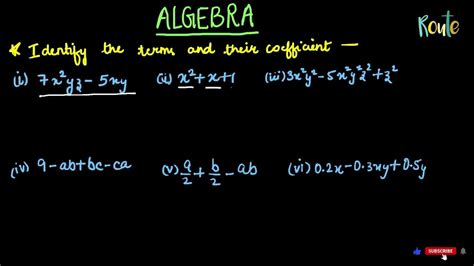 ALGEBRA
Route
* Identify the terms and their coefficient —
(i) 7x²yz - 5xy (ii) x² + x + 1 (iii) 3x²y² - 5x²y²z² + z²
(iv) 9 - ab + bc - ca (v) a/2 + b/2 - ab (vi) 0.2x - 0.3xy + 0.5y
SUBSCRIBE